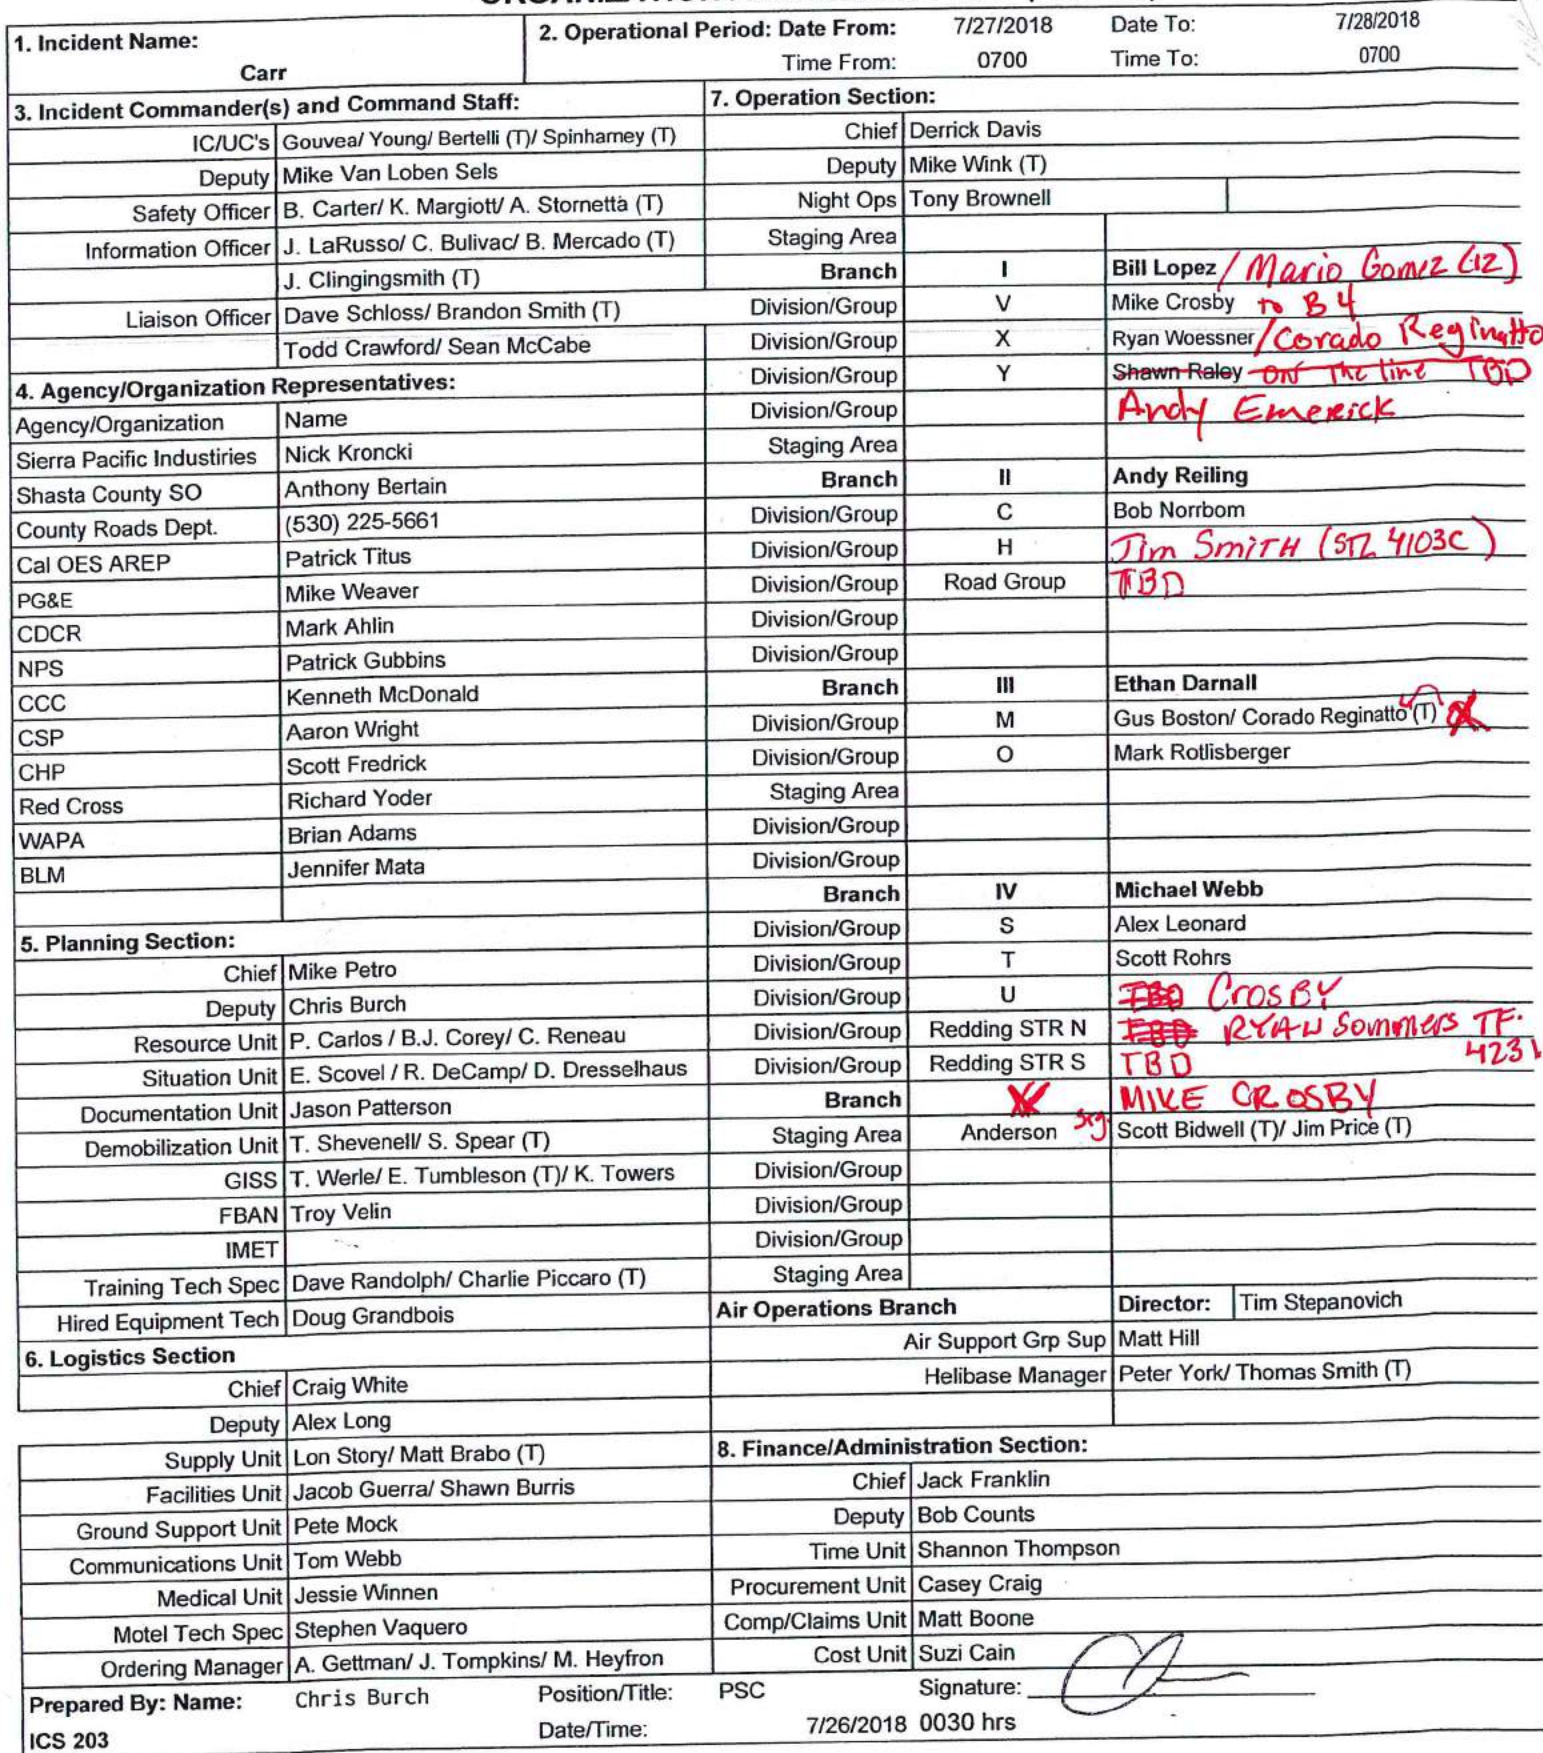 1. Incident Name:
Carr
2. Operational Period: Date From: 7/27/2018 Date To: 7/28/2018
Time From: 0700 Time To: 0700
3. Incident Commander(s) and Command Staff:
IC/UC's Gouvea/ Young/ Bertelli (T)/ Spinharney (T)
Deputy Mike Van Loben Sels
Safety Officer B. Carter/ K. Margiott/ A. Stornetta (T)
Information Officer J. LaRusso/ C. Bulivac/ B. Mercado (T)
J. Clingingsmith (T)
Liaison Officer Dave Schloss/ Brandon Smith (T)
Todd Crawford/ Sean McCabe
4. Agency/Organization Representatives:
Agency/Organization Name
Sierra Pacific Industiries Nick Kroncki
Shasta County SO Anthony Bertain
County Roads Dept. (530) 225-5661
Cal OES AREP Patrick Titus
PG&E Mike Weaver
CDCR Mark Ahlin
NPS Patrick Gubbins
CCC Kenneth McDonald
CSP Aaron Wright
CHP Scott Fredrick
Red Cross Richard Yoder
WAPA Brian Adams
BLM Jennifer Mata
5. Planning Section:
Chief Mike Petro
Deputy Chris Burch
Resource Unit P. Carlos / B.J. Corey/ C. Reneau
Situation Unit E. Scovel / R. DeCamp/ D. Dresselhaus
Documentation Unit Jason Patterson
Demobilization Unit T. Shevenell/ S. Spear (T)
GISS T. Werle/ E. Tumbleson (T)/ K. Towers
FBAN Troy Velin
IMET
Training Tech Spec Dave Randolph/ Charlie Piccaro (T)
Hired Equipment Tech Doug Grandbois
6. Logistics Section
Chief Craig White
Deputy Alex Long
Supply Unit Lon Story/ Matt Brabo (T)
Facilities Unit Jacob Guerra/ Shawn Burris
Ground Support Unit Pete Mock
Communications Unit Tom Webb
Medical Unit Jessie Winnen
Motel Tech Spec Stephen Vaquero
Ordering Manager A. Gettman/ J. Tompkins/ M. Heyfron
7. Operation Section:
Chief Derrick Davis
Deputy Mike Wink (T)
Night Ops Tony Brownell
Staging Area
Branch I Bill Lopez / Mario Gomez
Division/Group V Mike Crosby to B 4
Division/Group X Ryan Woessner /Corado Reginatto
Division/Group Y Shawn Raley ON The line TBD
Division/Group Andy Emerick
Staging Area
Branch II Andy Reiling
Division/Group C Bob Norrbom
Division/Group H Jim SmiTH (STL 4103C)
Division/Group Road Group TBD
Division/Group
Division/Group
Branch III Ethan Darnall
Division/Group M Gus Boston/ Corado Reginatto (T)
Division/Group O Mark Rotlisberger
Staging Area
Division/Group
Division/Group
Branch IV Michael Webb
Division/Group S Alex Leonard
Division/Group T Scott Rohrs
Division/Group U TBD CrosBY
Division/Group Redding STR N TBD RYAN Sommers TF.
4231
Division/Group Redding STR S TBD
Branch MIKE CROSBY
Staging Area Anderson Scott Bidwell (T)/ Jim Price (T)
Division/Group
Division/Group
Division/Group
Staging Area
Air Operations Branch Director: Tim Stepanovich
Air Support Grp Sup Matt Hill
Helibase Manager Peter York/ Thomas Smith (T)
8. Finance/Administration Section:
Chief Jack Franklin
Deputy Bob Counts
Time Unit Shannon Thompson
Procurement Unit Casey Craig
Comp/Claims Unit Matt Boone
Cost Unit Suzi Cain
Prepared By: Name: Chris Burch Position/Title: PSC Signature:
ICS 203 Date/Time: 7/26/2018 0030 hrs